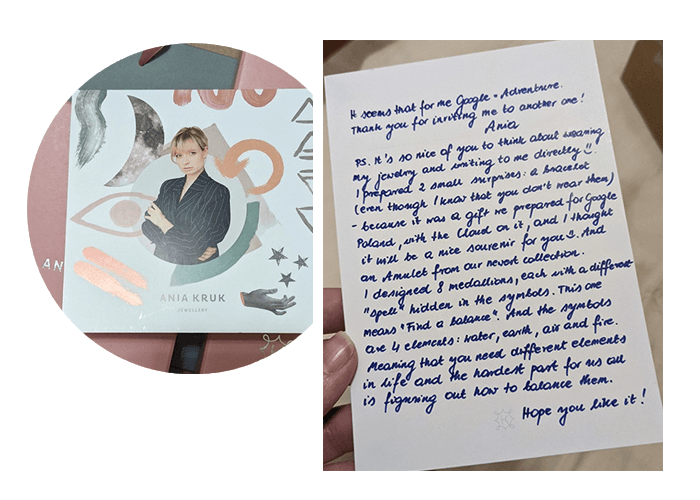 AN
ANIA KRUK
JEWELLERY
It seems that for me Google = Adventure.
Thank you for inviting me to another one!
Ania
PS. It's so nice of you to think about wearing
my jewelry and writing to me directly ☺.
I prepared 2 small surprises: a bracelet
(even though I know that you don't wear them)
- because it was a gift we prepared for Google
Poland, with the Cloud on it, and I thought
it will be a nice souvenir for you ☺. And
an Amulet from our newest collection.
I designed 8 medallions, each with a different
"spell" hidden in the symbols. This one
means "Find a balance". And the symbols
are 4 elements: water, earth, air and fire.
Meaning that you need different elements
in life and the hardest part for us all
is figuring out how to balance them.
Hope you like it!